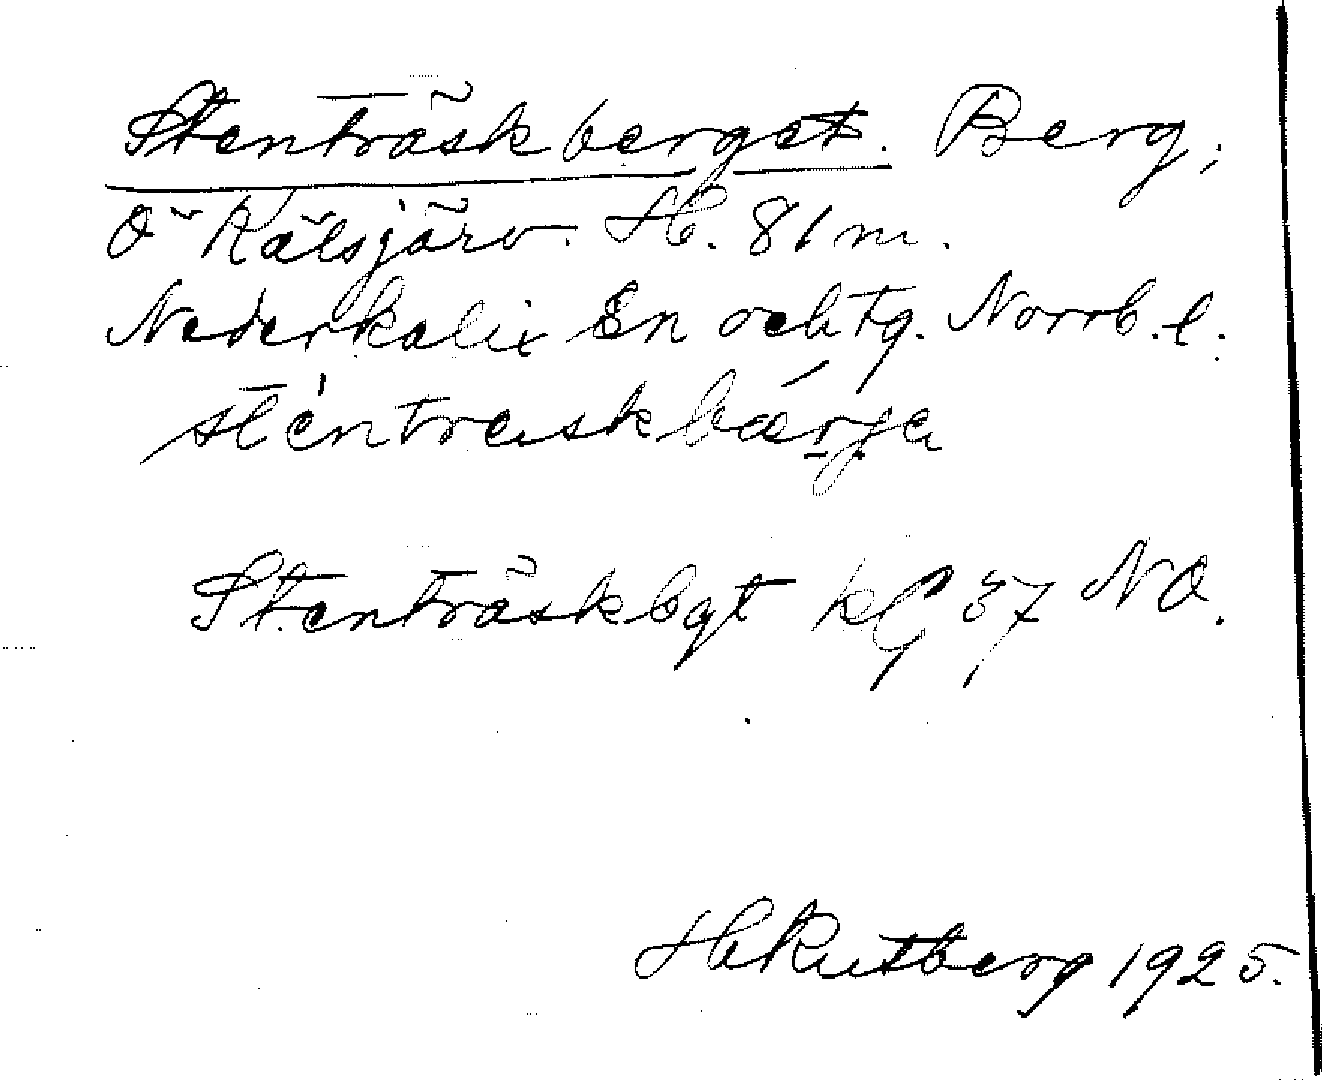 Stenträskberget. Berg,
Ö Kälsjärv. H. 81 m.
Nederkalix sn och tg. Norrb. l.
sténtraskbærja
Stenträskbgt kG 37 NO.
H Rutberg 1925.